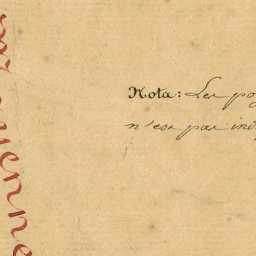 Nota: Les po
n'est pas ind
yenne